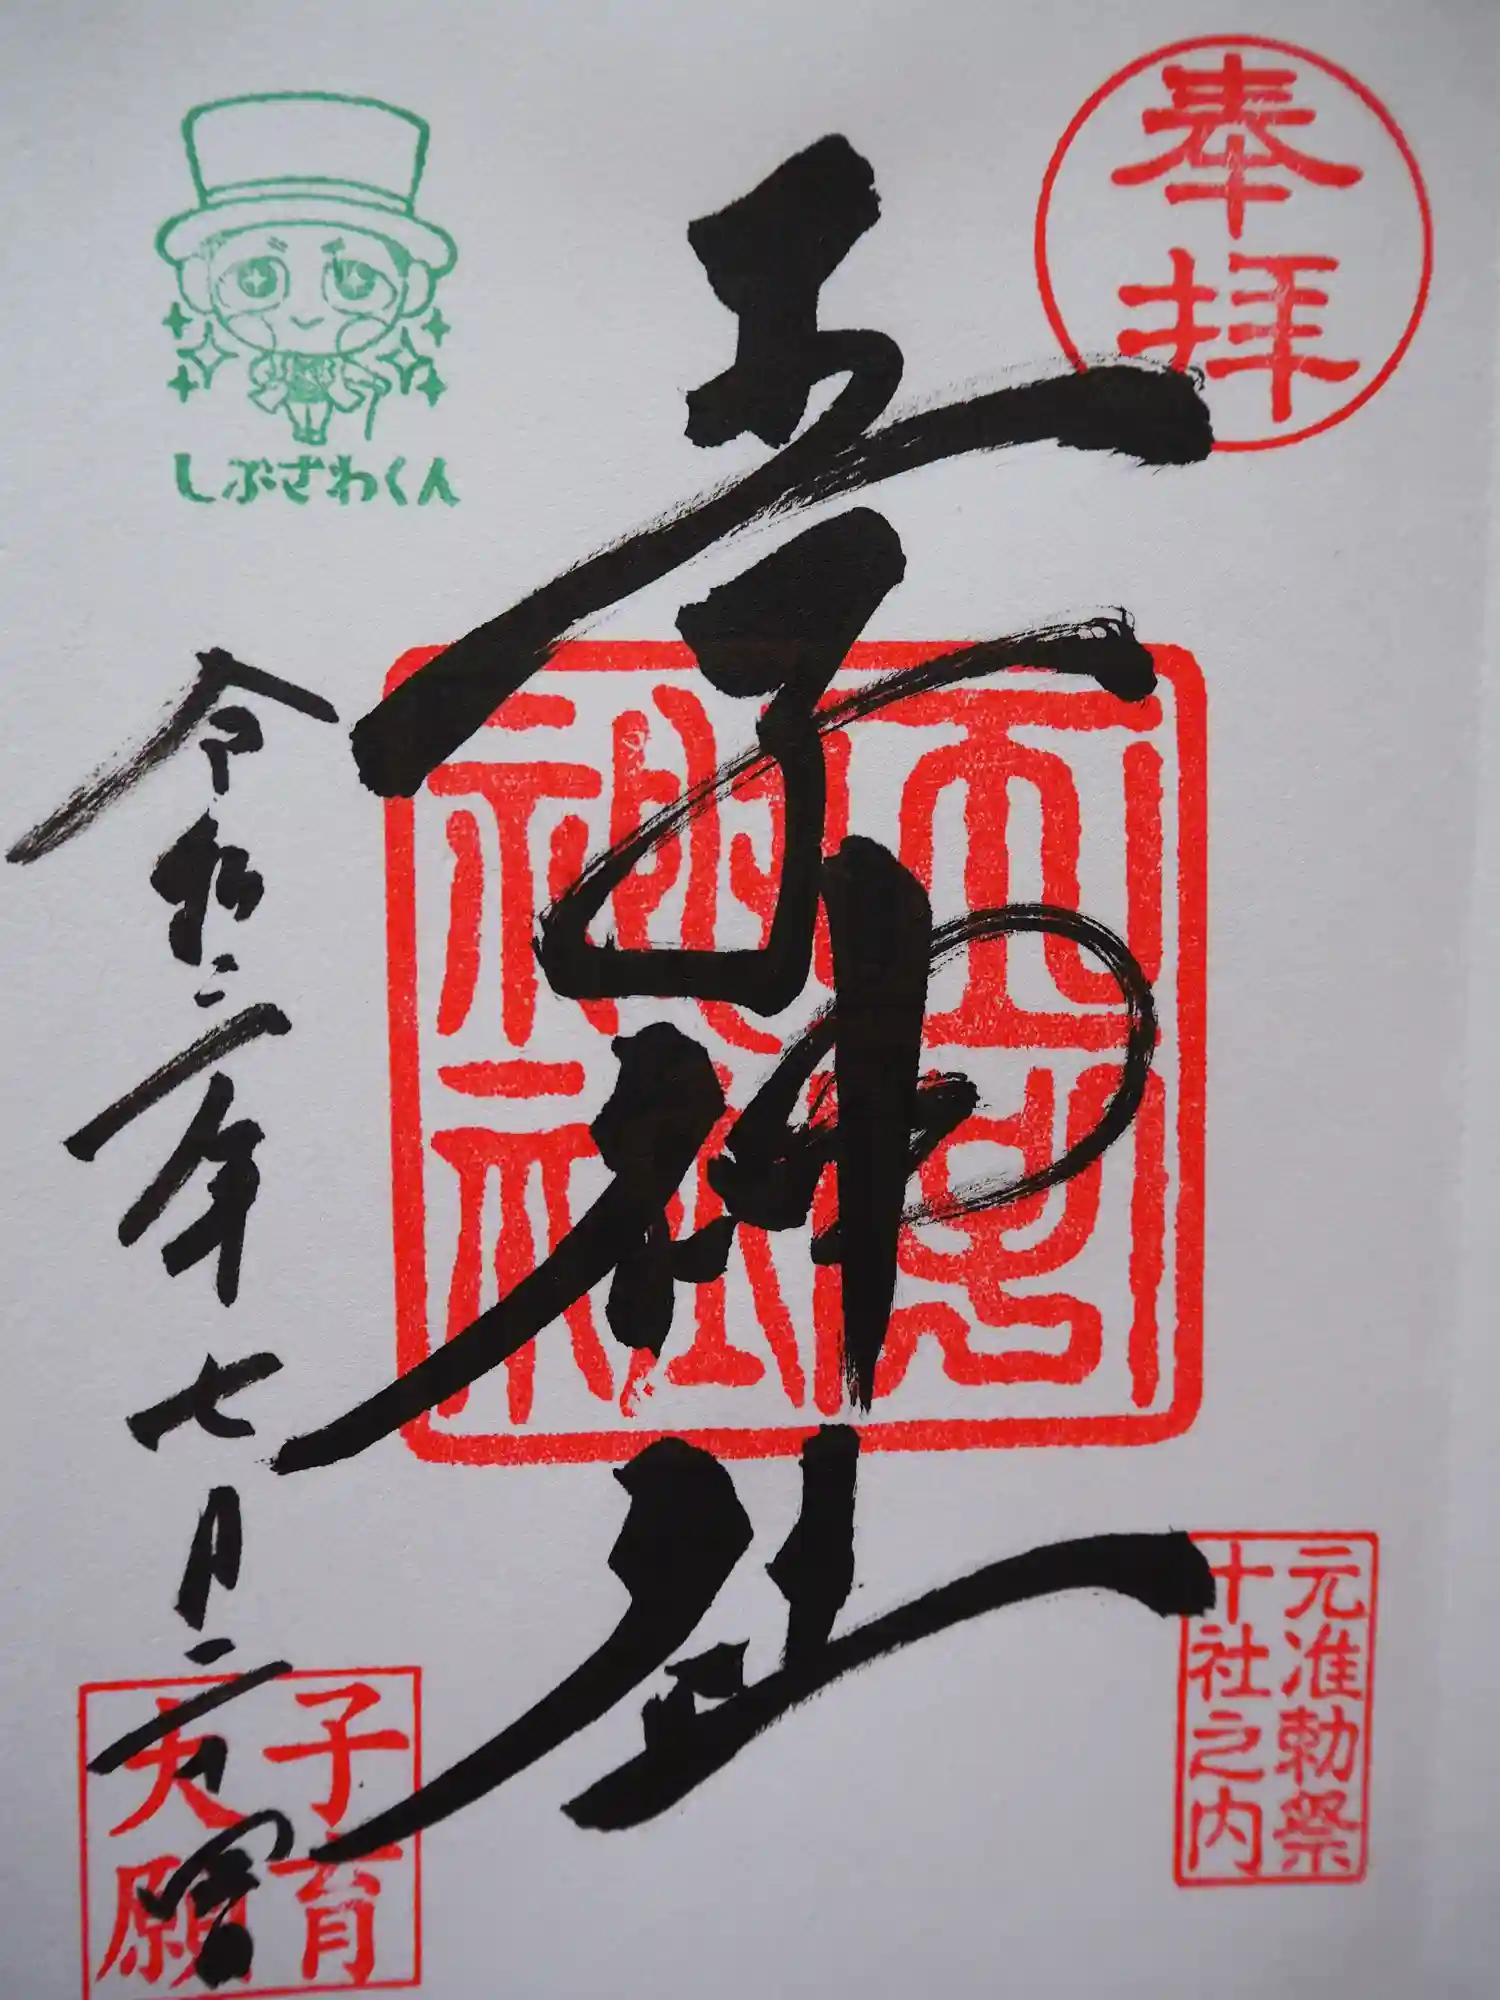 奉拝
元准勅祭
十社之内
王子神社
しぶざわくん
令和二年七月二日
子育
大願